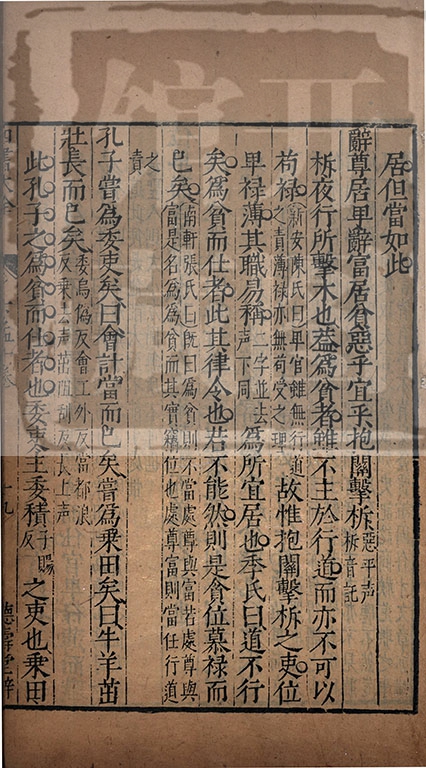 居但當如此
辭尊居卑辭富居貧惡乎宜乎抱關擊柝惡平聲柝音託
柝夜行所擊木也蓋為貧者雖不主於行道而亦不可以
苟祿新安陳氏曰卑官雖無行道之責薄祿亦無苟受之理故惟抱關擊柝之吏位
卑祿薄其職易稱二字並去聲下同為所宜居也李氏曰道不行
矣為貧而仕者此其律令也若不能然則是貪位慕祿而
已矣南軒張氏曰既曰為貧則不當處尊與富若處尊與富是名為為貧而其實竊位也處尊富則當任行道
之責
孔子嘗為委吏矣曰會計當而已矣嘗為乘田矣曰牛羊茁
壯長而已矣委烏偽反會工外反當都浪反乘去聲茁阻刮反長上聲
此孔子之為貧而仕者也委吏主委積子賜反之吏也乘田
十九